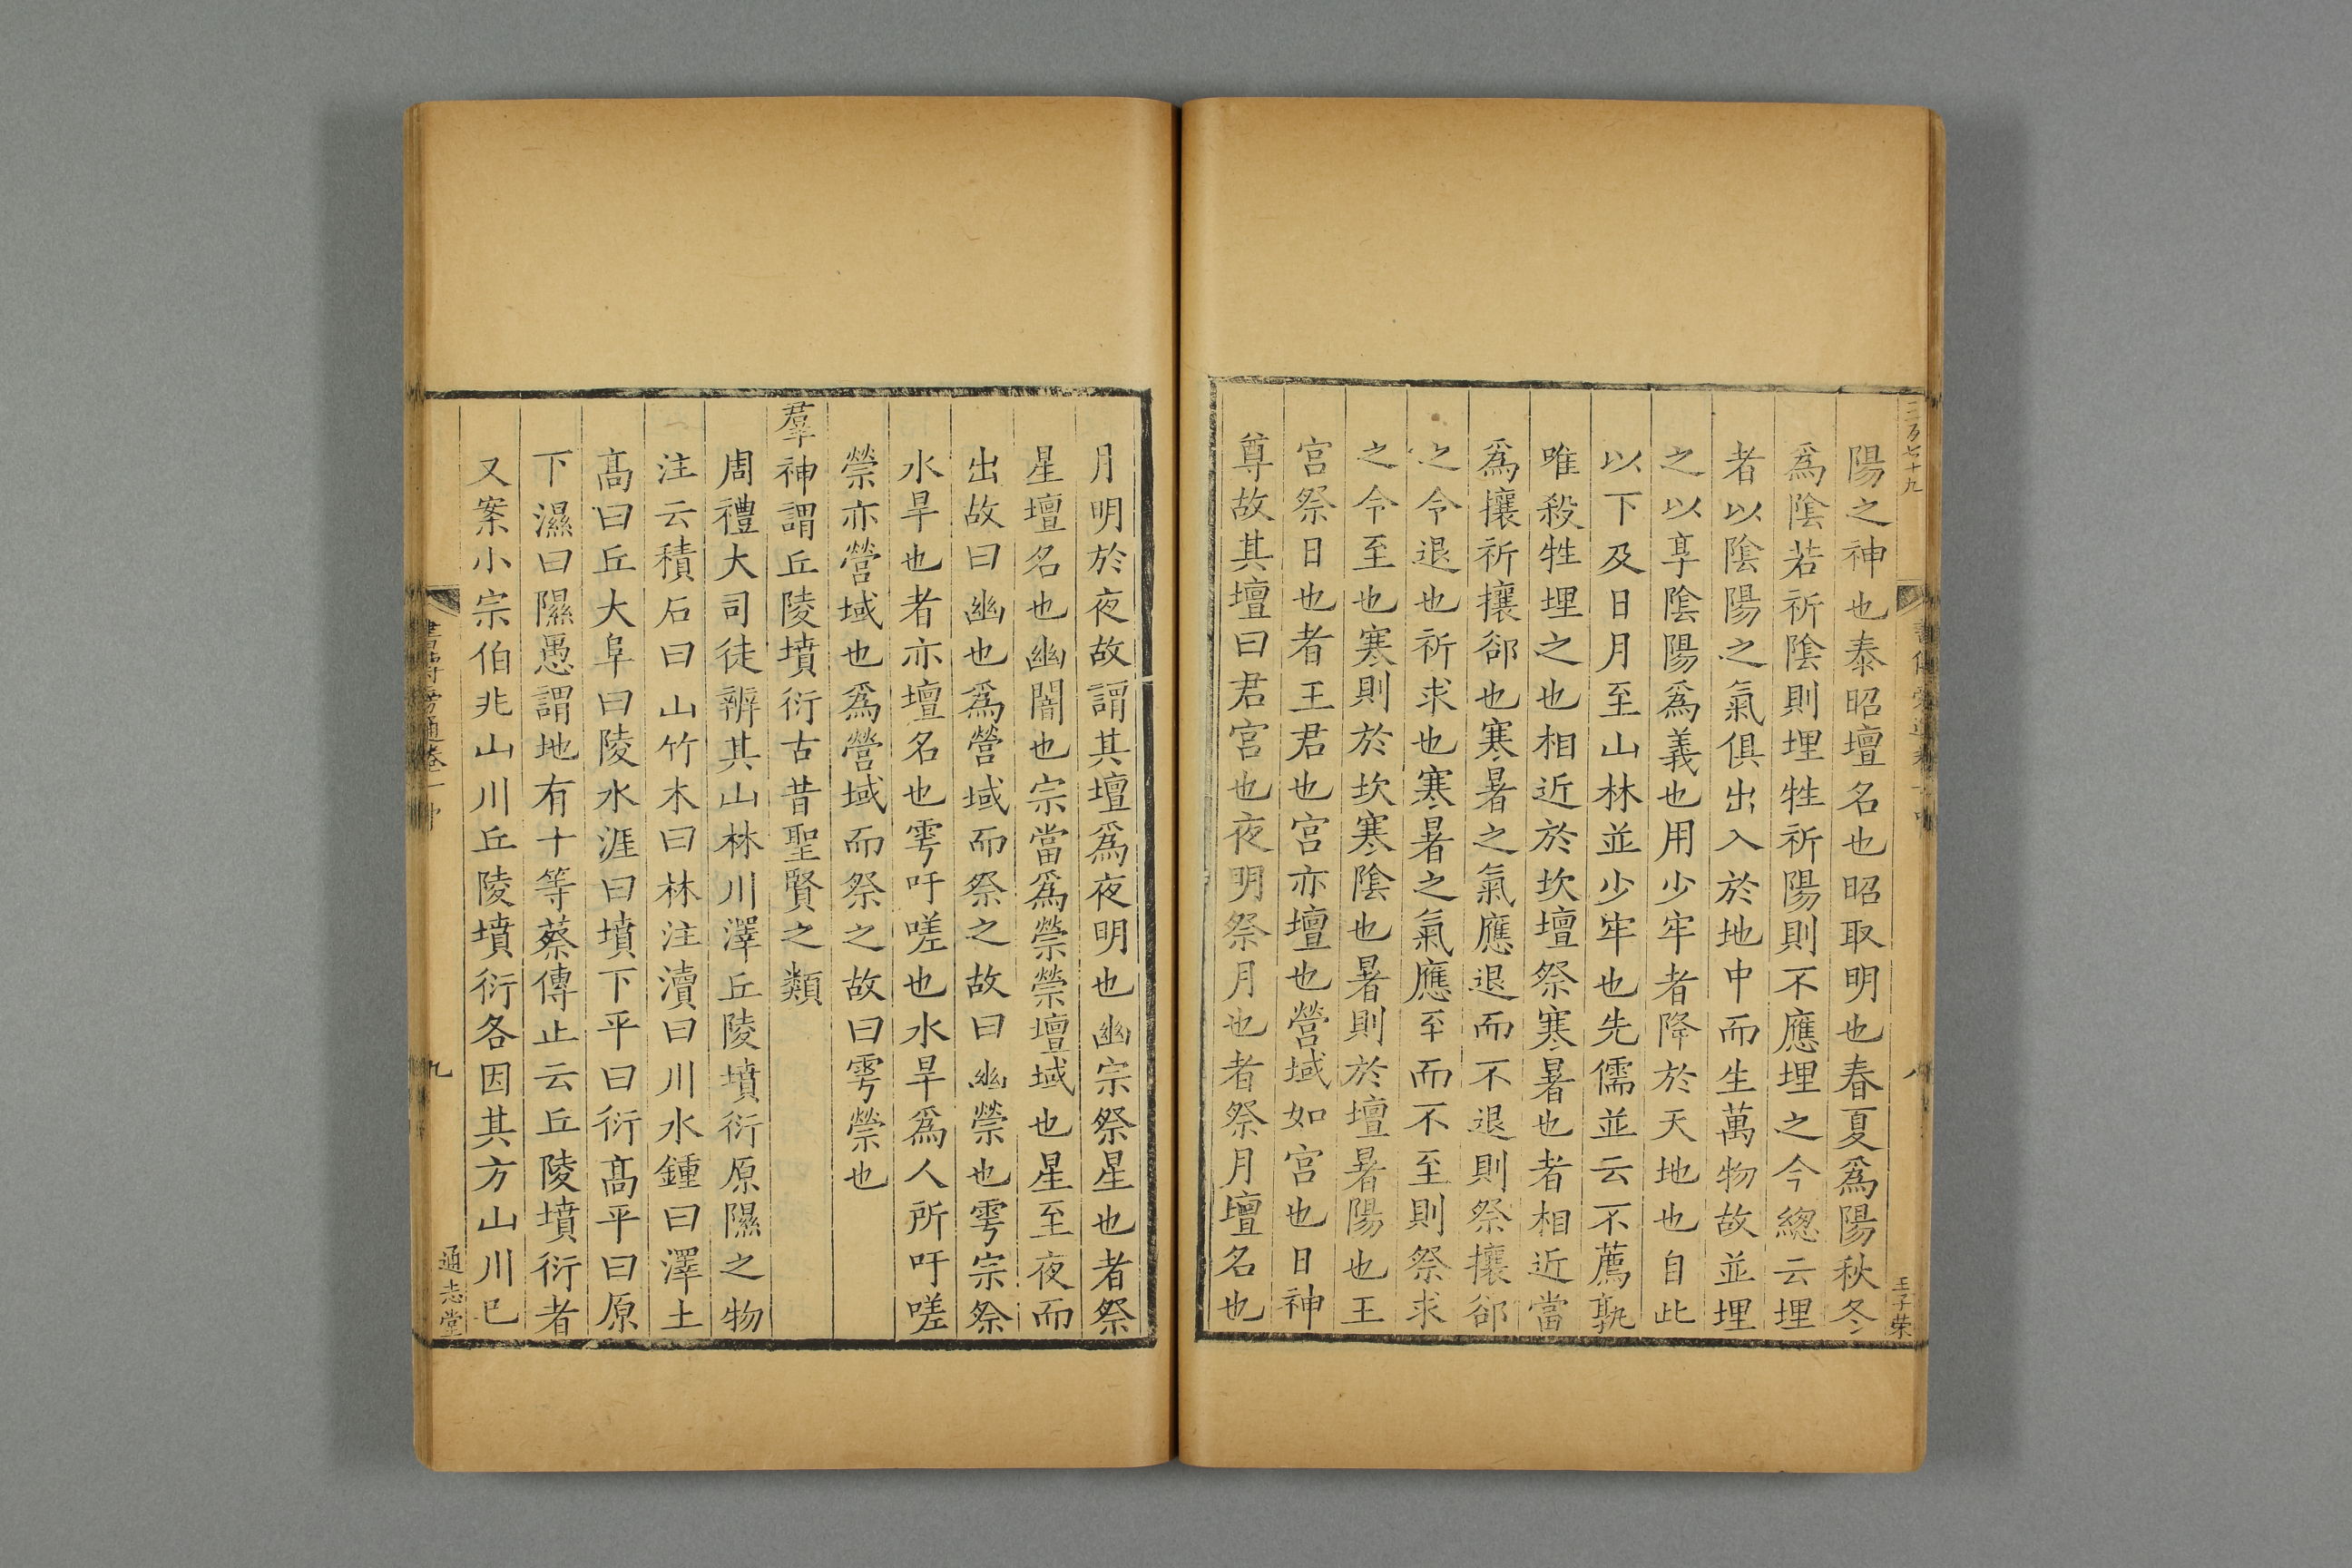 陽之神也泰昭壇名也昭取明也春夏爲陽秋冬
爲陰若祈陰則埋牲祈陽則不應埋之今緫云埋
者以陰陽之氣俱出入於地中而生萬物故並埋
之以享陰陽爲義也用少牢者降於天地也自此
以下及日月至山林並少牢也先儒並云不薦孰
唯殺牲埋之也相近於坎壇祭寒暑也者相近當
爲攘祈攘郤也寒暑之氣應退而不退則祭攘郤
之令退也祈求也寒暑之氣應至而不至則祭求
之令至也寒則於坎寒陰也暑則於壇暑陽也王
宫祭日也者王君也宫亦壇也營域如宫也日神
尊故其壇曰君宫也夜明祭月也者祭月壇名也
王子荣
八
月明於夜故謂其壇爲夜明也幽宗祭星也者祭
星壇名也幽闇也宗當爲禜禜壇域也星至夜而
出故曰幽也爲營域而祭之故曰幽禜也雩宗祭
水旱也者亦壇名也雩吁嗟也水旱爲人所吁嗟
禜亦營域也爲營域而祭之故曰雩禜也
羣神謂丘陵墳衍古昔聖賢之類
周禮大司徒辨其山林川澤丘陵墳衍原隰之物
注云積石曰山竹木曰林注瀆曰川水鍾曰澤土
髙曰丘大阜曰陵水涯曰墳下平曰衍髙平曰原
下濕曰隰愚謂地有十等蔡傳止云丘陵墳衍者
又案小宗伯兆山川丘陵墳衍各因其方山川巳
書傳旁通卷一中
九
通志堂